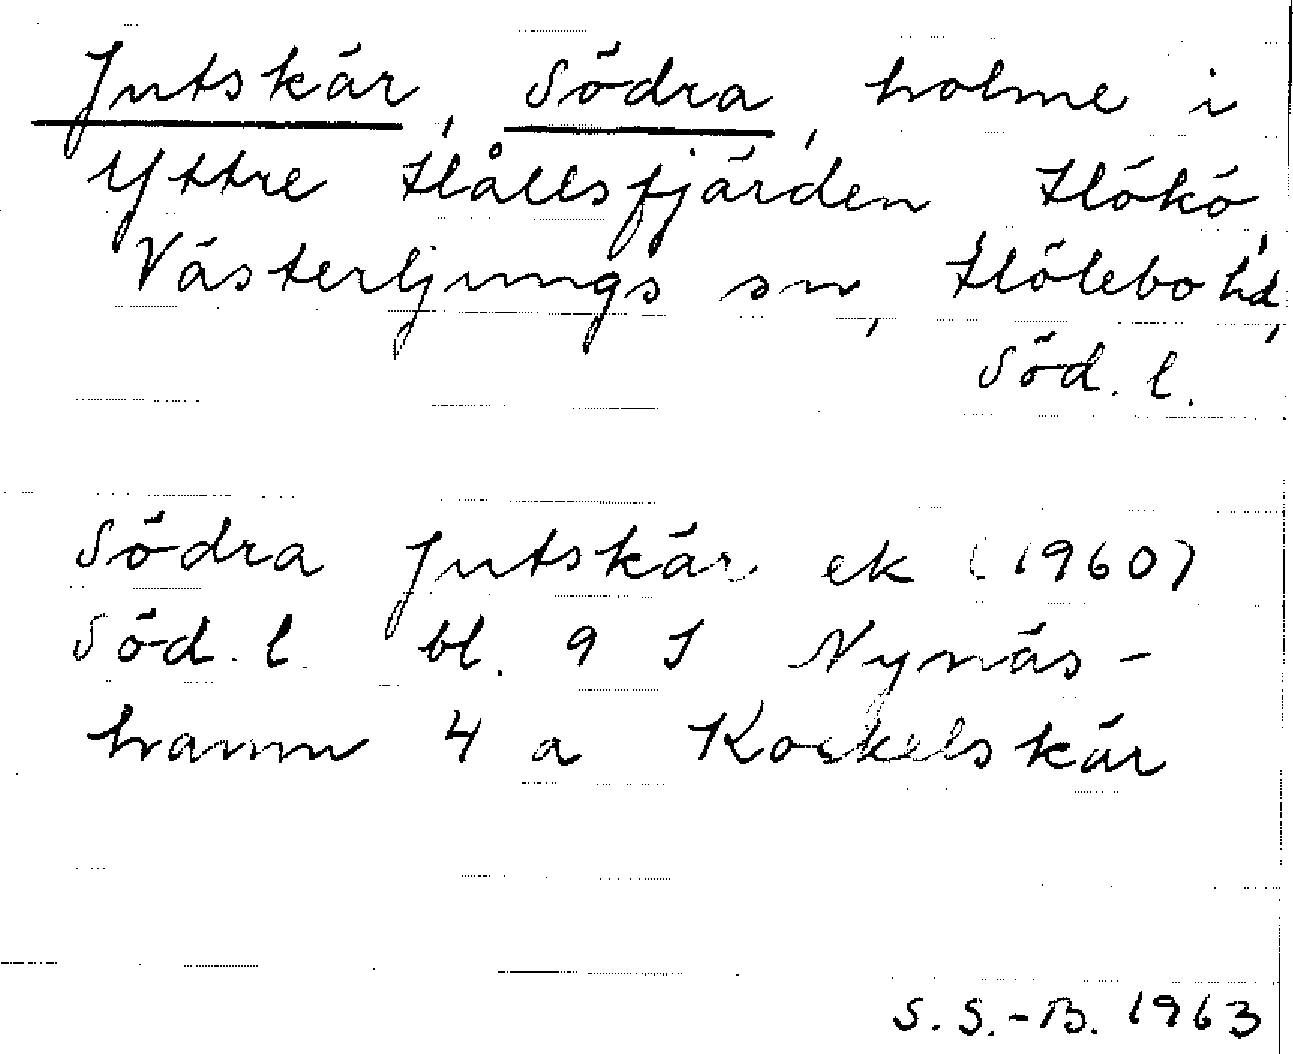 Jutskär, Södra, holme i
Yttre Hållsfjärden Hökö,
Västerljungs sn, Hölebo hd,
Söd. l.
Södra Jutskär ek (1960)
Söd. l. bl. 9 I Nynäs-
hamn 4 a Kockelskär
S. S.-B. 1963